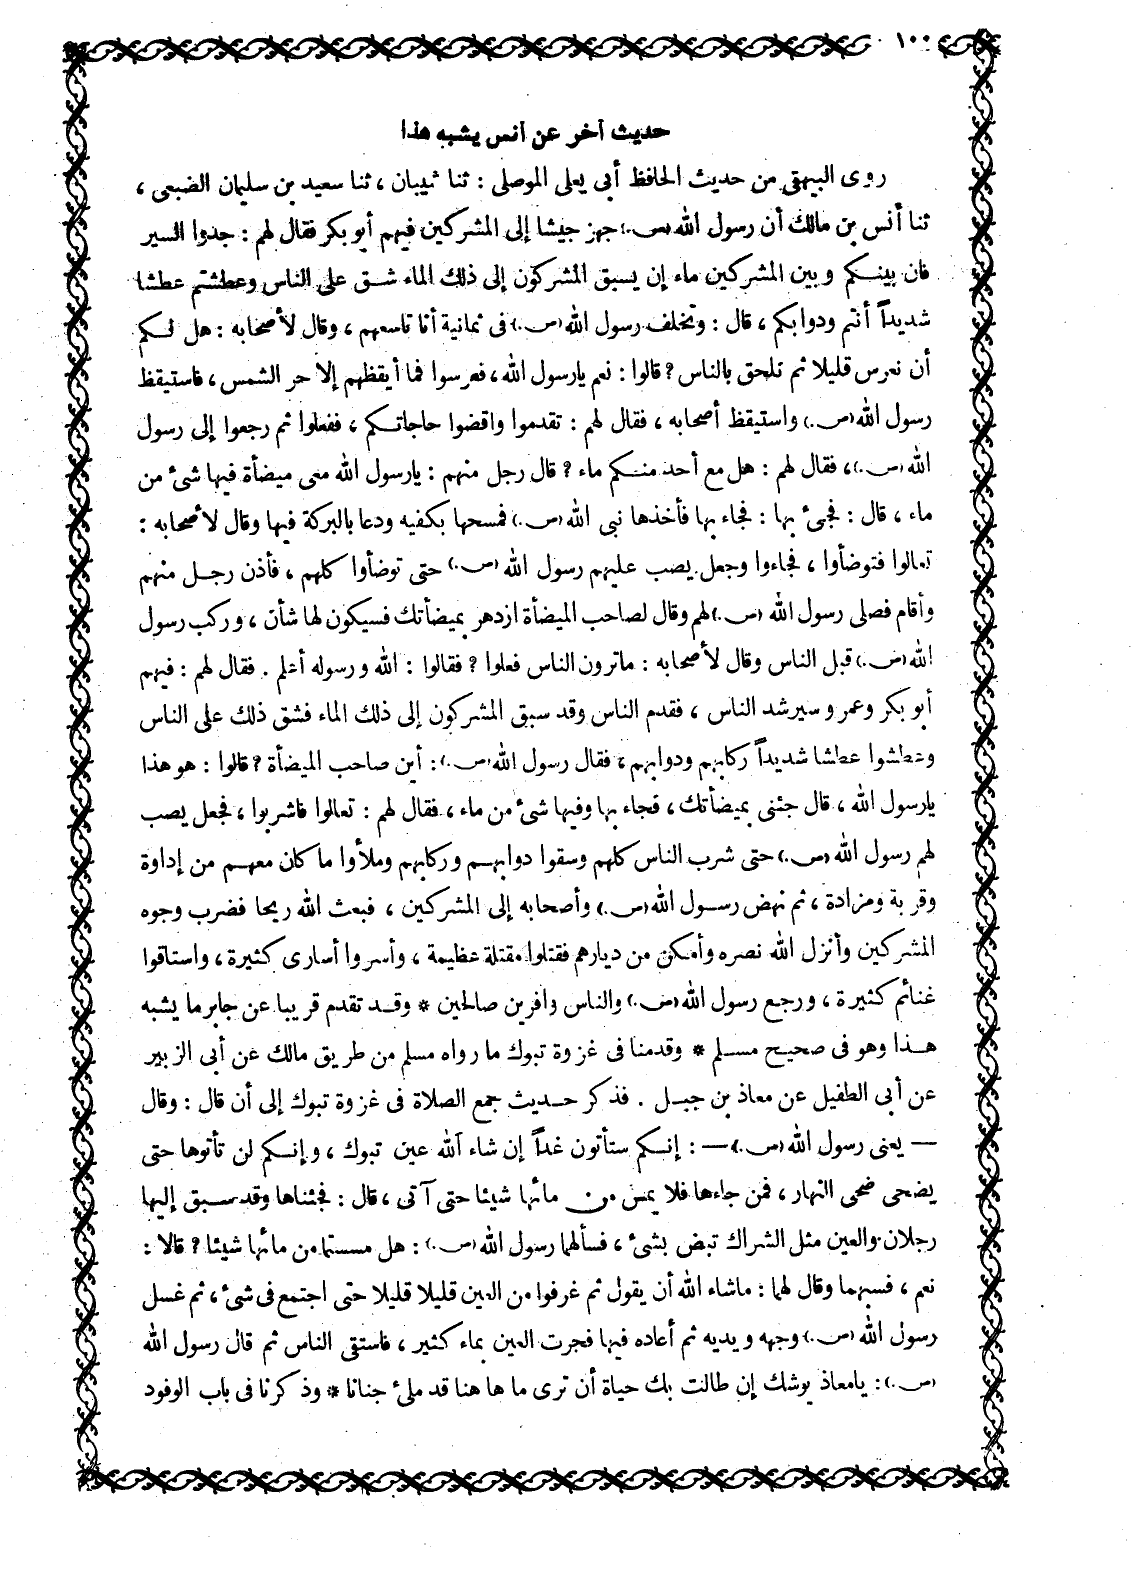 ١٠٠
حديث آخر عن أنس يشبه هذا
روى البيهقى من حديث الحافظ أبى يعلى الموصلى : ثنا شيبان ، ثنا سعيد بن سليمان الضبعى ،
ثنا أنس بن مالك أن رسول الله (س.) جهز جيشا إلى المشركين فيهم أبو بكر فقال لهم : جدوا السير
فان بينكم وبين المشركين ماء إن يسبق المشركون إلى ذلك الماء شق على الناس وعطشتم عطشا
شديداً أنتم ودوابكم ، قال : وتخلف رسول الله (س.) فى ثمانية أنا تاسعهم ، وقال لأصحابه : هل لكم
أن نعرس قليلا ثم نلحق بالناس ؟ قالوا : نعم يارسول الله ، فعرسوا فما أيقظهم إلا حر الشمس ، فاستيقظ
رسول الله (س.) واستيقظ أصحابه ، فقال لهم : تقدموا واقضوا حاجاتكم ، ففعلوا ثم رجعوا إلى رسول
الله (س.) ، فقال لهم : هل مع أحد منكم ماء ؟ قال رجل منهم : يارسول الله معى ميضأة فيها شىء من
ماء ، قال : فجىء بها : فجاء بها فأخذها نبى الله (س.) فمسحها بكفيه ودعا بالبركة فيها وقال لأصحابه :
تعالوا فتوضأوا ، فجاءوا وجعل يصب عليهم رسول الله (س.) حتى توضأوا كلهم ، فأذن رجل منهم
وأقام فصلى رسول الله (س.) لهم وقال لصاحب الميضأة ازدهر بميضأتك فسيكون لها شأن ، وركب رسول
الله (س.) قبل الناس وقال لأصحابه : ماترون الناس فعلوا ؟ فقالوا : الله ورسوله أعلم . فقال لهم : فيهم
أبو بكر وعمر وسيرشد الناس ، فقدم الناس وقد سبق المشركون إلى ذلك الماء فشق ذلك على الناس
وعطشوا عطشا شديداً ركابهم ودوابهم ، فقال رسول الله (س.) : أين صاحب الميضأة ؟ قالوا : هو هذا
يارسول الله ، قال جئنى بميضأتك ، فجاء بها وفيها شىء من ماء ، فقال لهم : تعالوا فاشربوا ، فجعل يصب
لهم رسول الله (س.) حتى شرب الناس كلهم وسقوا دوابهم وركابهم وملأوا ما كان معهم من إداوة
وقربة ومزادة ، ثم نهض رسول الله (س.) وأصحابه إلى المشركين ، فبعث الله ريحا فضرب وجوه
المشركين وأنزل الله نصره وأمكن من ديارهم فقتلوا مقتلة عظيمة ، وأسروا أسارى كثيرة ، واستاقوا
غنائم كثيرة ، ورجع رسول الله (س.) والناس وافرين صالحين * وقد تقدم قريبا عن جابر ما يشبه
هذا وهو فى صحيح مسلم * وقدمنا فى غزوة تبوك ما رواه مسلم من طريق مالك عن أبى الزبير
عن أبى الطفيل عن معاذ بن جبل . فذكر حديث جمع الصلاة فى غزوة تبوك إلى أن قال : وقال
— يعنى رسول الله (س.) — : إنكم ستأتون غداً إن شاء الله عين تبوك ، وإنكم لن تأتوها حتى
يضحى ضحى النهار ، فمن جاءها فلا يمس من مائها شيئا حتى آتى ، قال : فجئناها وقد سبق إليها
رجلان والعين مثل الشراك تبض بشىء ، فسألهما رسول الله (س.) : هل مسستما من مائها شيئا ؟ قالا :
نعم ، فسبهما وقال لهما : ماشاء الله أن يقول ثم غرفوا من العين قليلا قليلا حتى اجتمع فى شىء ، ثم غسل
رسول الله (س.) وجهه ويديه ثم أعاده فيها فجرت العين بماء كثير ، فاستقى الناس ثم قال رسول الله
(س.) : يامعاذ يوشك إن طالت بك حياة أن ترى ما ها هنا قد ملىء جنانا * وذكرنا فى باب الوفود